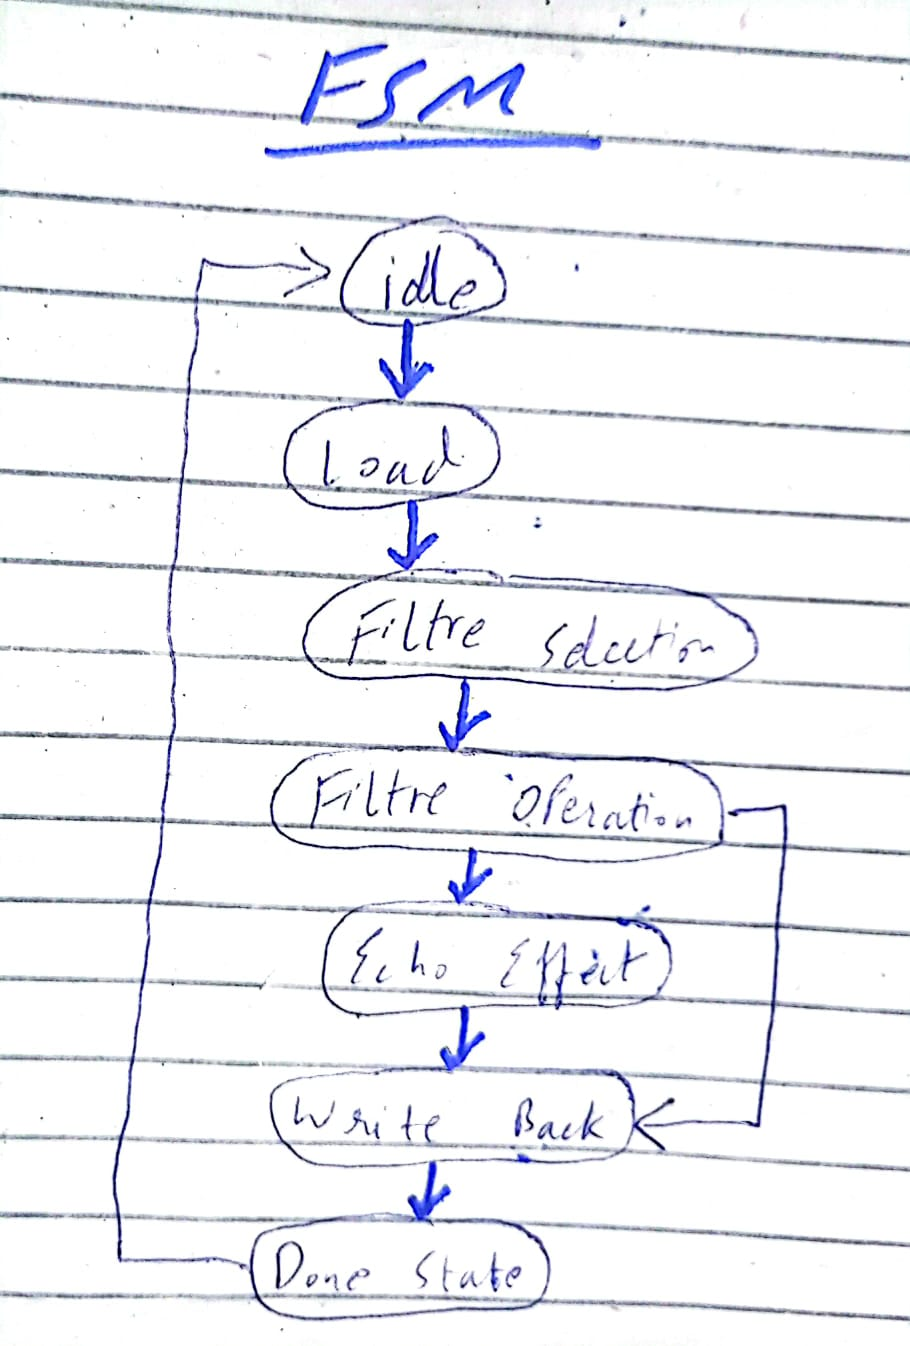 FSM
idle
Load
Filtre Selection
Filtre Operation
Echo Effect
Write Back
Done State